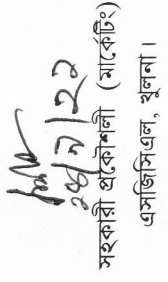 সহকারী প্রকৌশলী (মার্কেটিং)
এসজিসিএল, খুলনা।